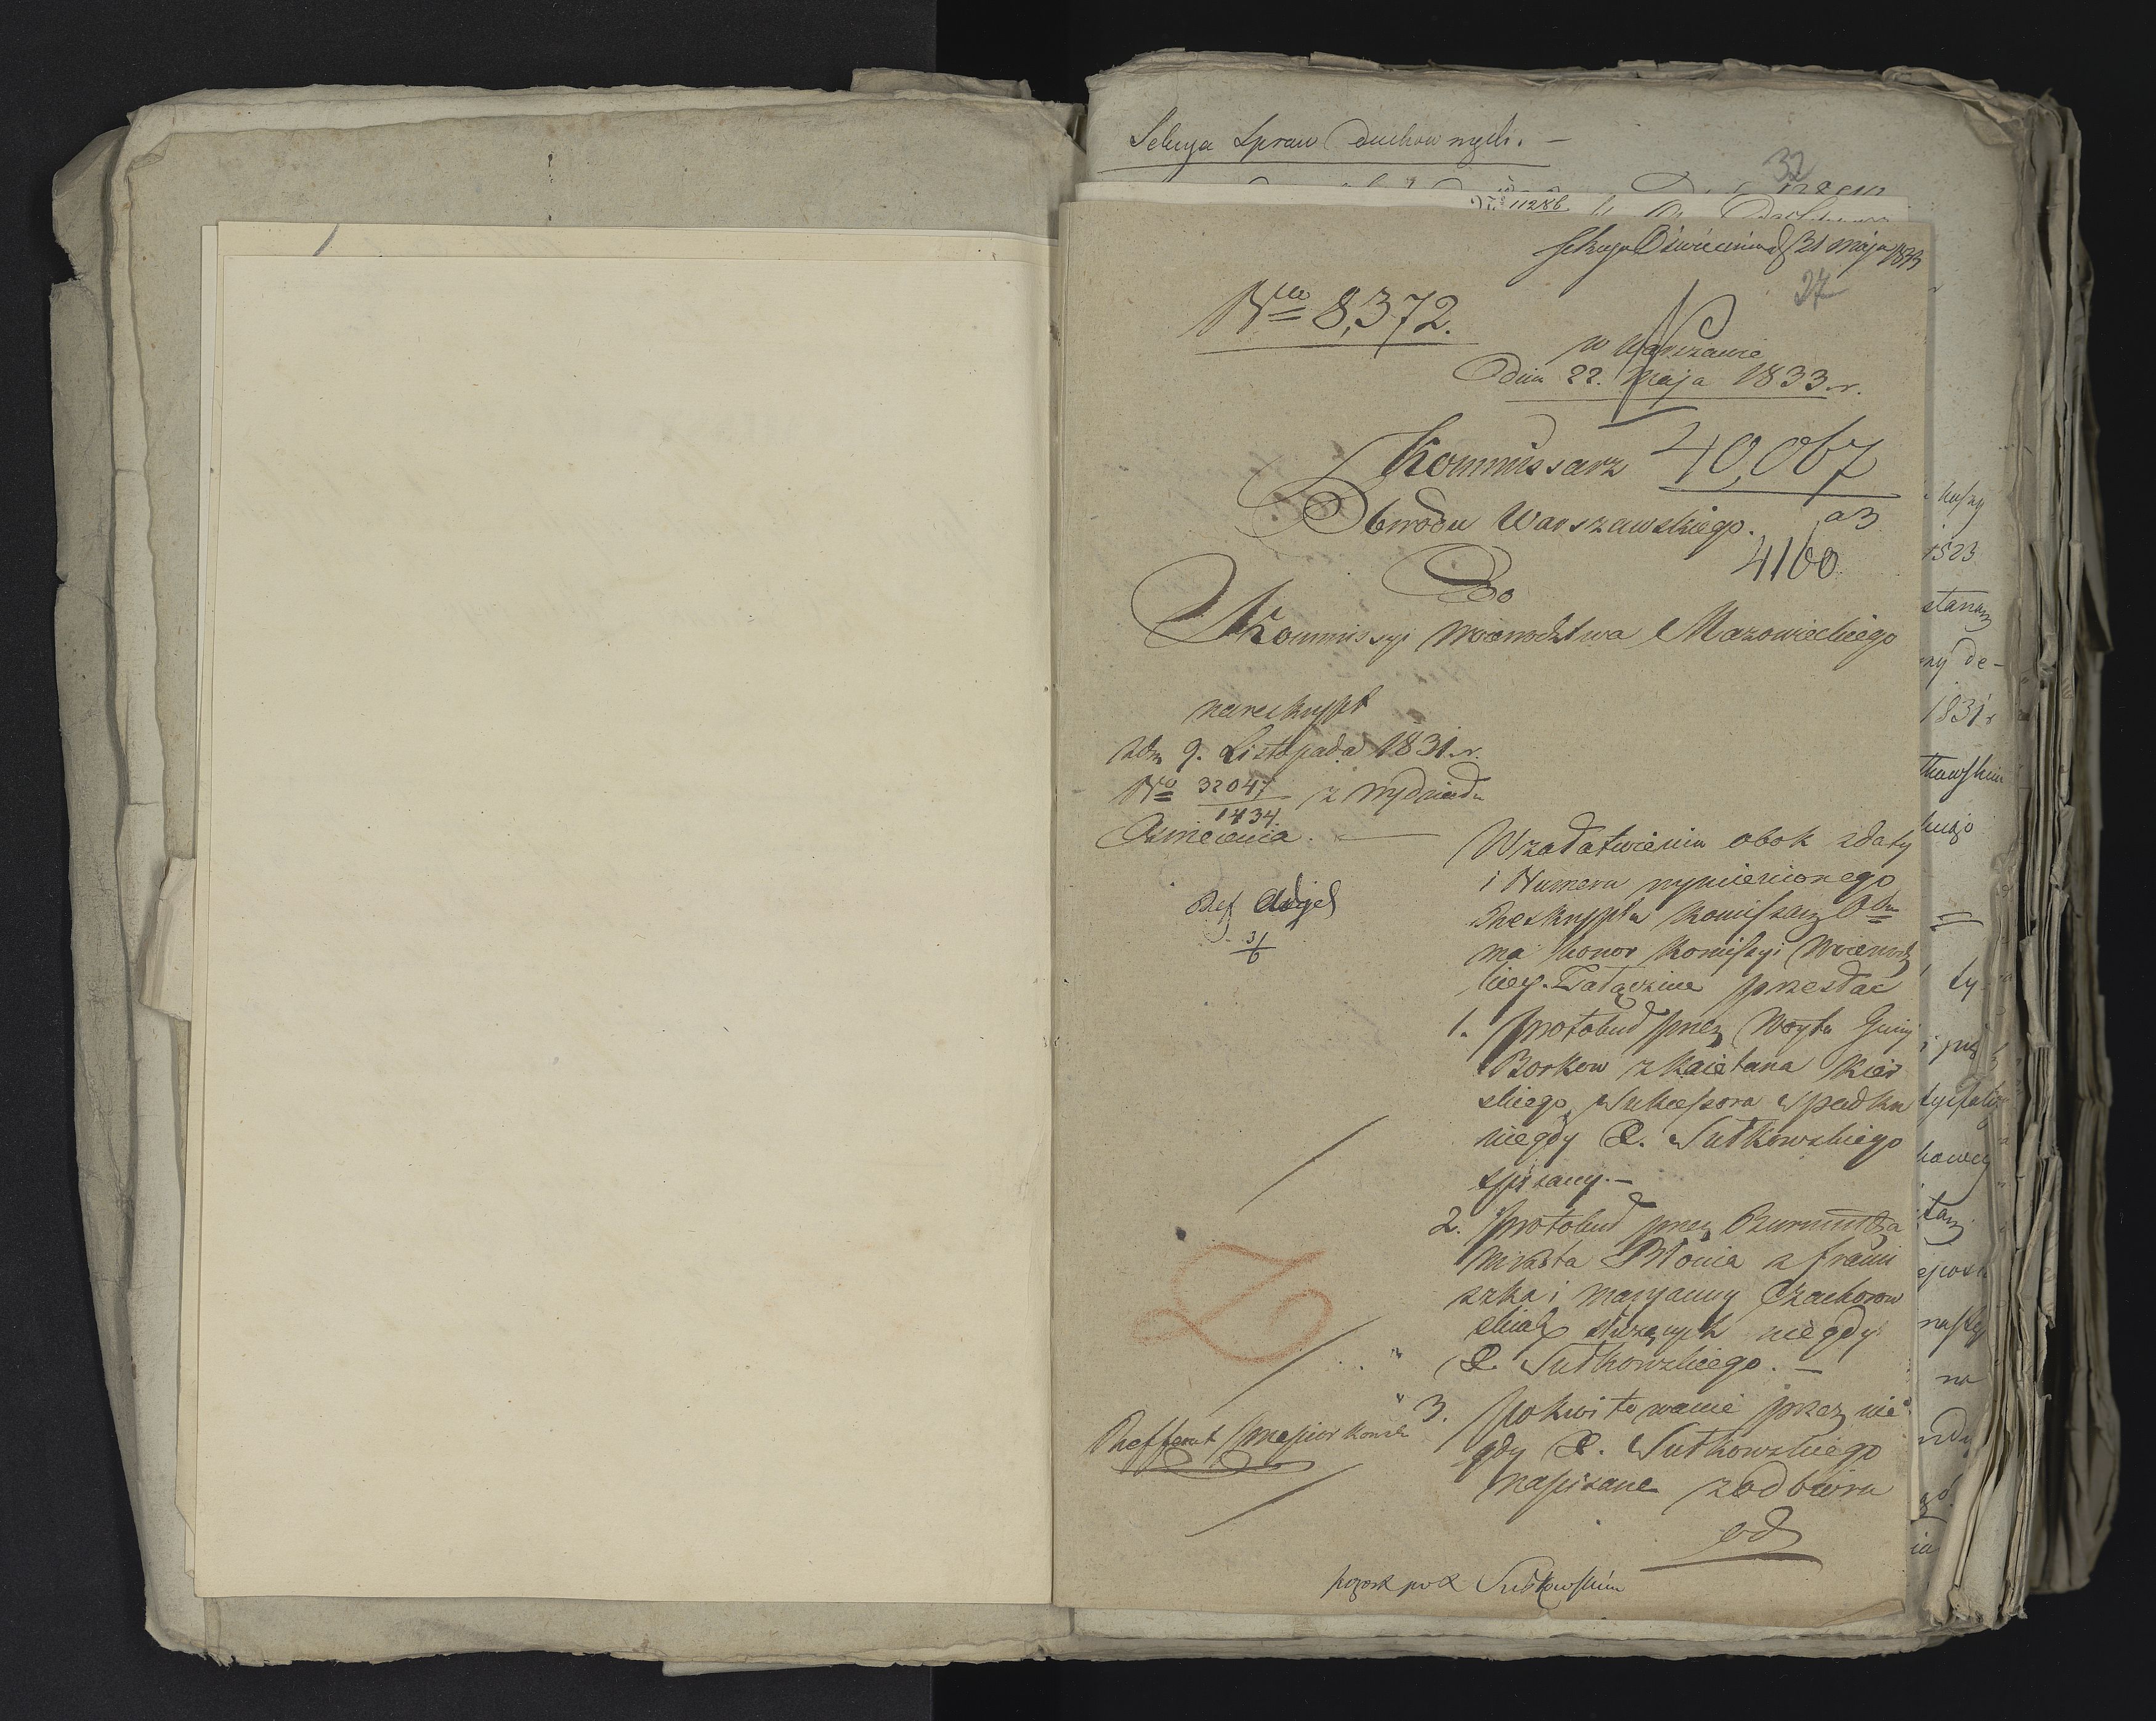 Sekcya Spraw Duchownych. —
32
11286
Sekcya Oświecenia d 31 Maja 1833
27
Nro 8,372.
w Warszawie
Dnia 22. Maja 1833. r.
Kommissarz 40,067
Obwodu Warszawskiego. a3
4160
Do
Kommissyi Woiewództwa Mazowieckiego
na reskrypt
z dn 9. Listopada 1831. r.
Nro 32047/1434 z Wydziału
Oświecenia. —
Ref
3/6
W załatwieniu obok z daty
i Numeru wymienionego
Reskryptu Kommissarz Obdu
ma honor Kommissyi Woiewódz
kiey. Załącznie przesłać
1. Protokuł przez Woyta Gminy
Borkow z Kaietana Kier
skiego Sukcessora Spadku
niegdy X. Sutkowskiego
spisany. —
2. Protokuł przez Burmistrza
Miasta Błonia z Franci
szka i Maryanny Czachorow
skich służących niegdy
X. Sutkowskiego. —
3. Pokwitowanie przez nie
gdy X. Sutkowskiego
napisane z odbioru
od
Refferent
po X Sutkowskim
1823
1831 r
na